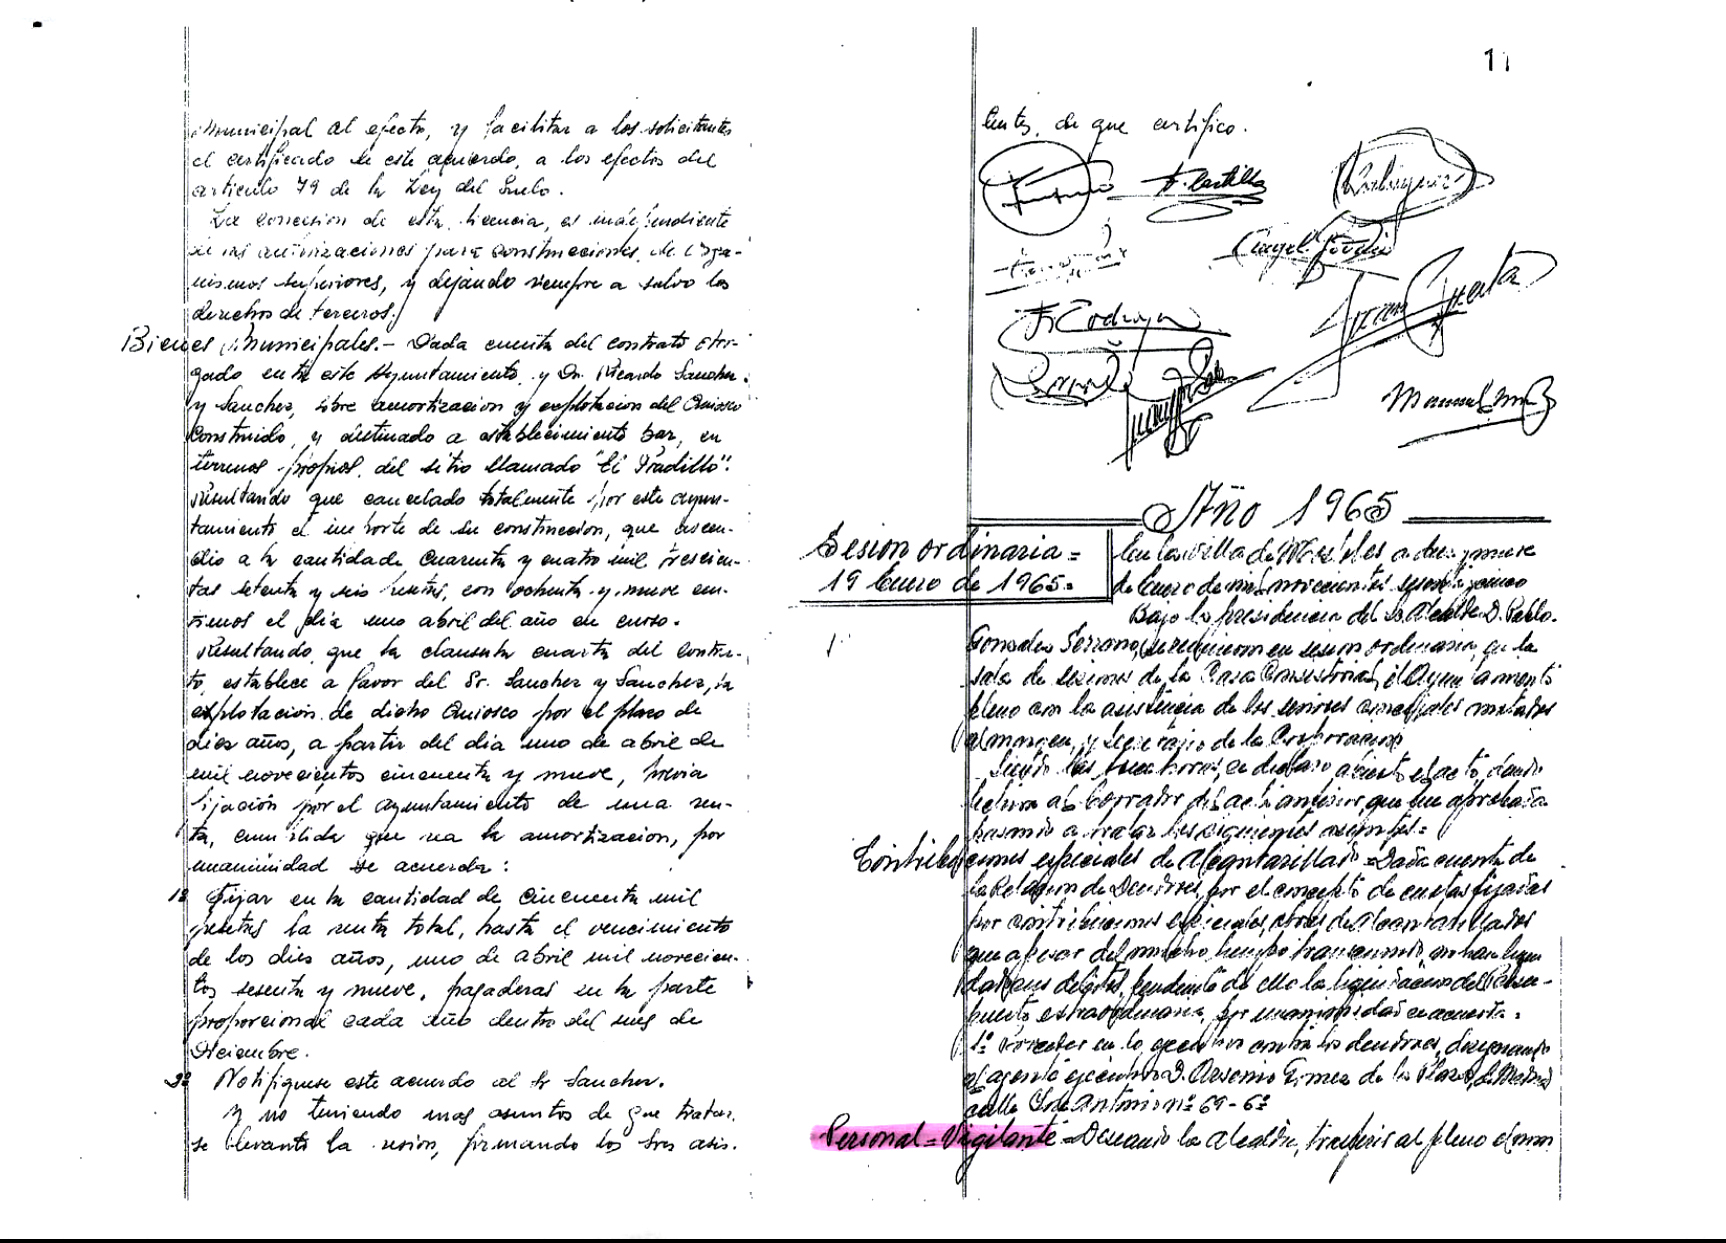 Municipal al efecto, y facilitar a los solicitantes
el certificado de este acuerdo, a los efectos del
articulo 79 de la Ley del Suelo.
La concesion de esta licencia, es independiente
de las autorizaciones para construcciones, de Orga-
nismos superiores, y dejando siempre a salvo los
derechos de terceros.
Bienes Municipales.- Dada cuenta del contrato otor-
gado entre este Ayuntamiento y Dn. Ricardo Sanchez
y Sanchez, sobre amortizacion y explotacion del Quiosco
construido, y destinado a establecimiento bar, en
terrenos propios, del sitio llamado "El Pradillo":
resultando que cancelado totalmente por este ayun-
tamiento el importe de su construccion, que ascen-
dio a la cantidad de cuarenta y cuatro mil trescien-
tas setenta y seis pesetas, con ochenta y nueve cen-
timos el dia uno abril del año en curso.
resultando, que la clausula cuarta del contra-
to, establece a favor del Sr. Sanchez y Sanchez, la
explotacion de dicho Quiosco por el plazo de
diez años, a partir del dia uno de abril de
mil novecientos cincuenta y nueve, previa
fijación por el ayuntamiento de una ren-
ta, cumplida que sea la amortizacion, por
unanimidad se acuerda:
1º Fijar en la cantidad de cincuenta mil
pesetas la renta total, hasta el vencimiento
de los diez años, uno de abril mil novecien-
tos sesenta y nueve, pagaderas en la parte
proporcional cada año dentro del mes de
Diciembre.
2º Notifiquese este acuerdo al Sr Sanchez.
Y no teniendo mas asuntos de que tratar,
se levanto la sesion, firmando los Sres asis-
11
tentes, de que certifico.
A. Castilla
Angel
F. Rodriguez
Juan Cuesta
Manuel
Año 1965
Sesion ordinaria =
19 Enero de 1965=
En la villa de Mostoles a diez y nueve
de Enero de mil novecientos sesenta y cinco
Bajo la presidencia del Sr. Alcalde D. Pablo
Gonzalez Serrano, se reunieron en sesion ordinaria, en la
sala de sesiones de la Casa Consistorial, el Ayuntamiento
pleno con la asistencia de los señores concejales anotados
al margen, y Secretario de la Corporacion
Siendo las horas, se declaro abierto el acto, dando
lectura al borrador del acta anterior, que fue aprobada
pasando a tratar los siguientes asuntos:=
Contribuciones especiales de Alcantarillado = Dada cuenta de
la Relacion de Deudores, por el concepto de cuotas fijadas
por contribuciones especiales, obras de Alcantarillados
que a pesar del mucho tiempo transcurrido, no han
pendiente de ello la liquidacion del Presu-
puesto extraordinario, por unanimidad se acuerda:
1º Proceder en lo ejecutivo contra los deudores, designando
el agente ejecutivo D. Arsenio Gomez de la Plaza, de Madrid
calle José Antonio nº 69-6º
Personal = Vigilante = Deseando la Alcaldia, transferir al pleno el